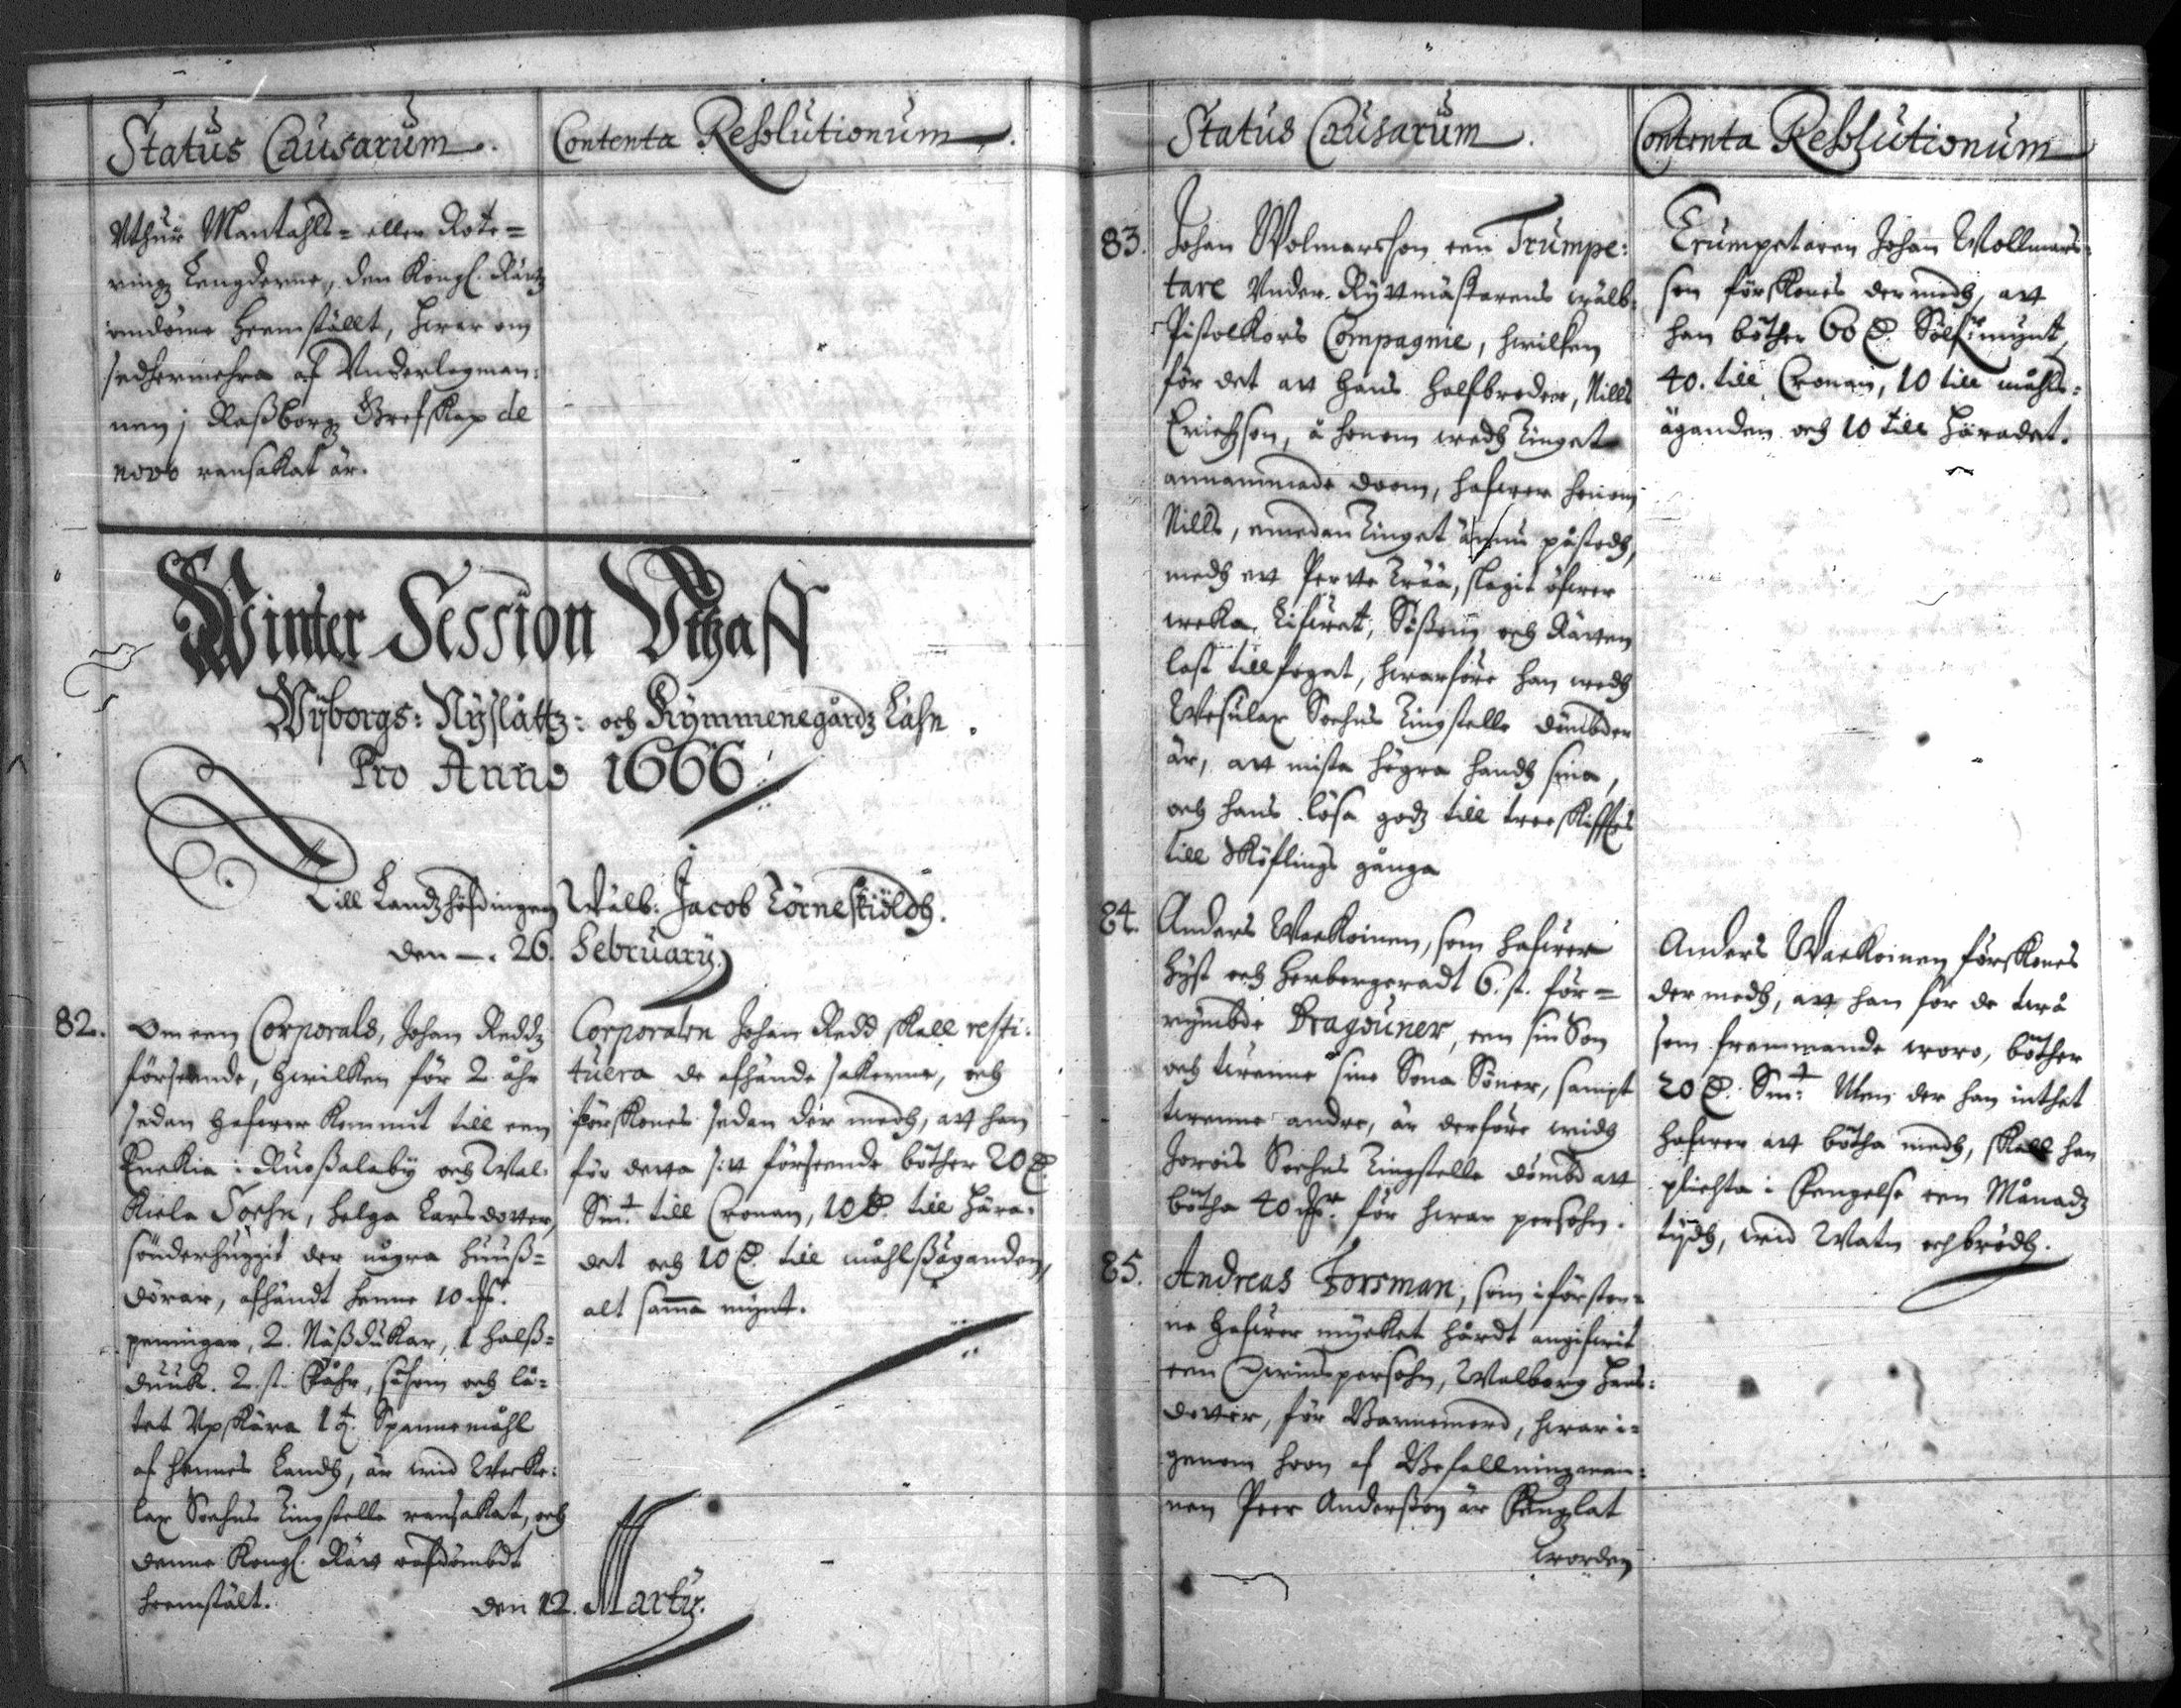 Status Causarum.
Contenta Resolutionum.
Uthur Mantahls= eller Rote=
ringz Lengderne, den Kongl. Rättz
omdöme heemstält, hwar om
sedhermehra af Underlagman:
nen j Raßborgz Grefskap de
novo ransakat är.
Winter Session Uthaff
Wijborgs: Nyslåttz: och Kymmenegårdz Lähn.
Pro Anno 1666
Till Landzhöfdingen Wälb: Jacob Törneskiöldh.
den 26. February.
82. Om een Corporals, Johan Reddz
förseende, hwilken för 2 åhr
sedan hafwer kommit till een
Enckia i Rußalaby och Wal:
kiela Sochn, Helga Larsdotter,
sönderhuggit der några huuß=
dörar, afhändt henne 10 dlr.
penningar, 2. Näßdukar, 1 halß=
duuk. 2. st. Fåhr, såsom och lå=
tet Upskära 1½. Spannemåhl
af hennes Landh, är wid Weckke:
lax Sochns Tingstelle ransakat, och
denne Kongl. Rätt oafdömbdt
heemstält.
Corporalen Johan Redd skall resti:
tuera de afhände sakerne, och
förskones sedan der medh, att han
för detta sitt förseende böther 20 D.
Smt. till Cronan, 10 D. till Hära:
det och 10 D. till måhlßäganden,
alt samma mynt.
den 12. Marty.
Status Causarum.
Contenta Resolutionum
83. Johan Wolmarsson een Trumpe:
tare Under Ryttmästarens wälb:
Pistolkors Compagnie, hwilken
för det att hans halfbroder, Nills
Erichsson, å honom wedh Tinget
annammade doom, hafwer honom
Nills, emedan Tinget ännu påstodh,
medh ett Perte Trää, slagit öfwer
weka Lifwet, Såßom och Rätten
last tillfogat, hwarföre han medh
Wesulax Sochns Tingstelle dömbder
är, att mista högra handh sina,
och hans lösa godz till treeskifftes
till Sköflings gånga
Trumpetaren Johan Wollmars:
son förskones der medh, att
han böther 60 D. Sölf:rmynt,
40. till Cronan, 10 till måhls:
äganden och 10 till Häradet.
84. Anders Waekoinen, som hafwer
hyst och herbergeradt 6. st. för=
rymbde Dragouner, een sin Son
och twenne sine Sona Söner, sampt
trenne andre, är derföre widh
Jorois Sochns Tingstelle dömbd att
bötha 40 mkr. för hwar persohn.
Anders Waekoinen förskones
der medh, att han för de twå
som frammande woro, böther
20 D. Smt: Men der han inthet
hafwer att bötha medh, skall han
plichta i Fengelse een Månadz
tijdh, wid Watn och brödh.
85. Andreas Forsman, som i försten=
ne hafwer mycket hårdt angifwit
een Qwinspersohn, Walborg Hans:
dotter, för Barnemord, hwari=
genom hoon af Befallningzman:
nen Peer Anderßon är Fengzlat
worden